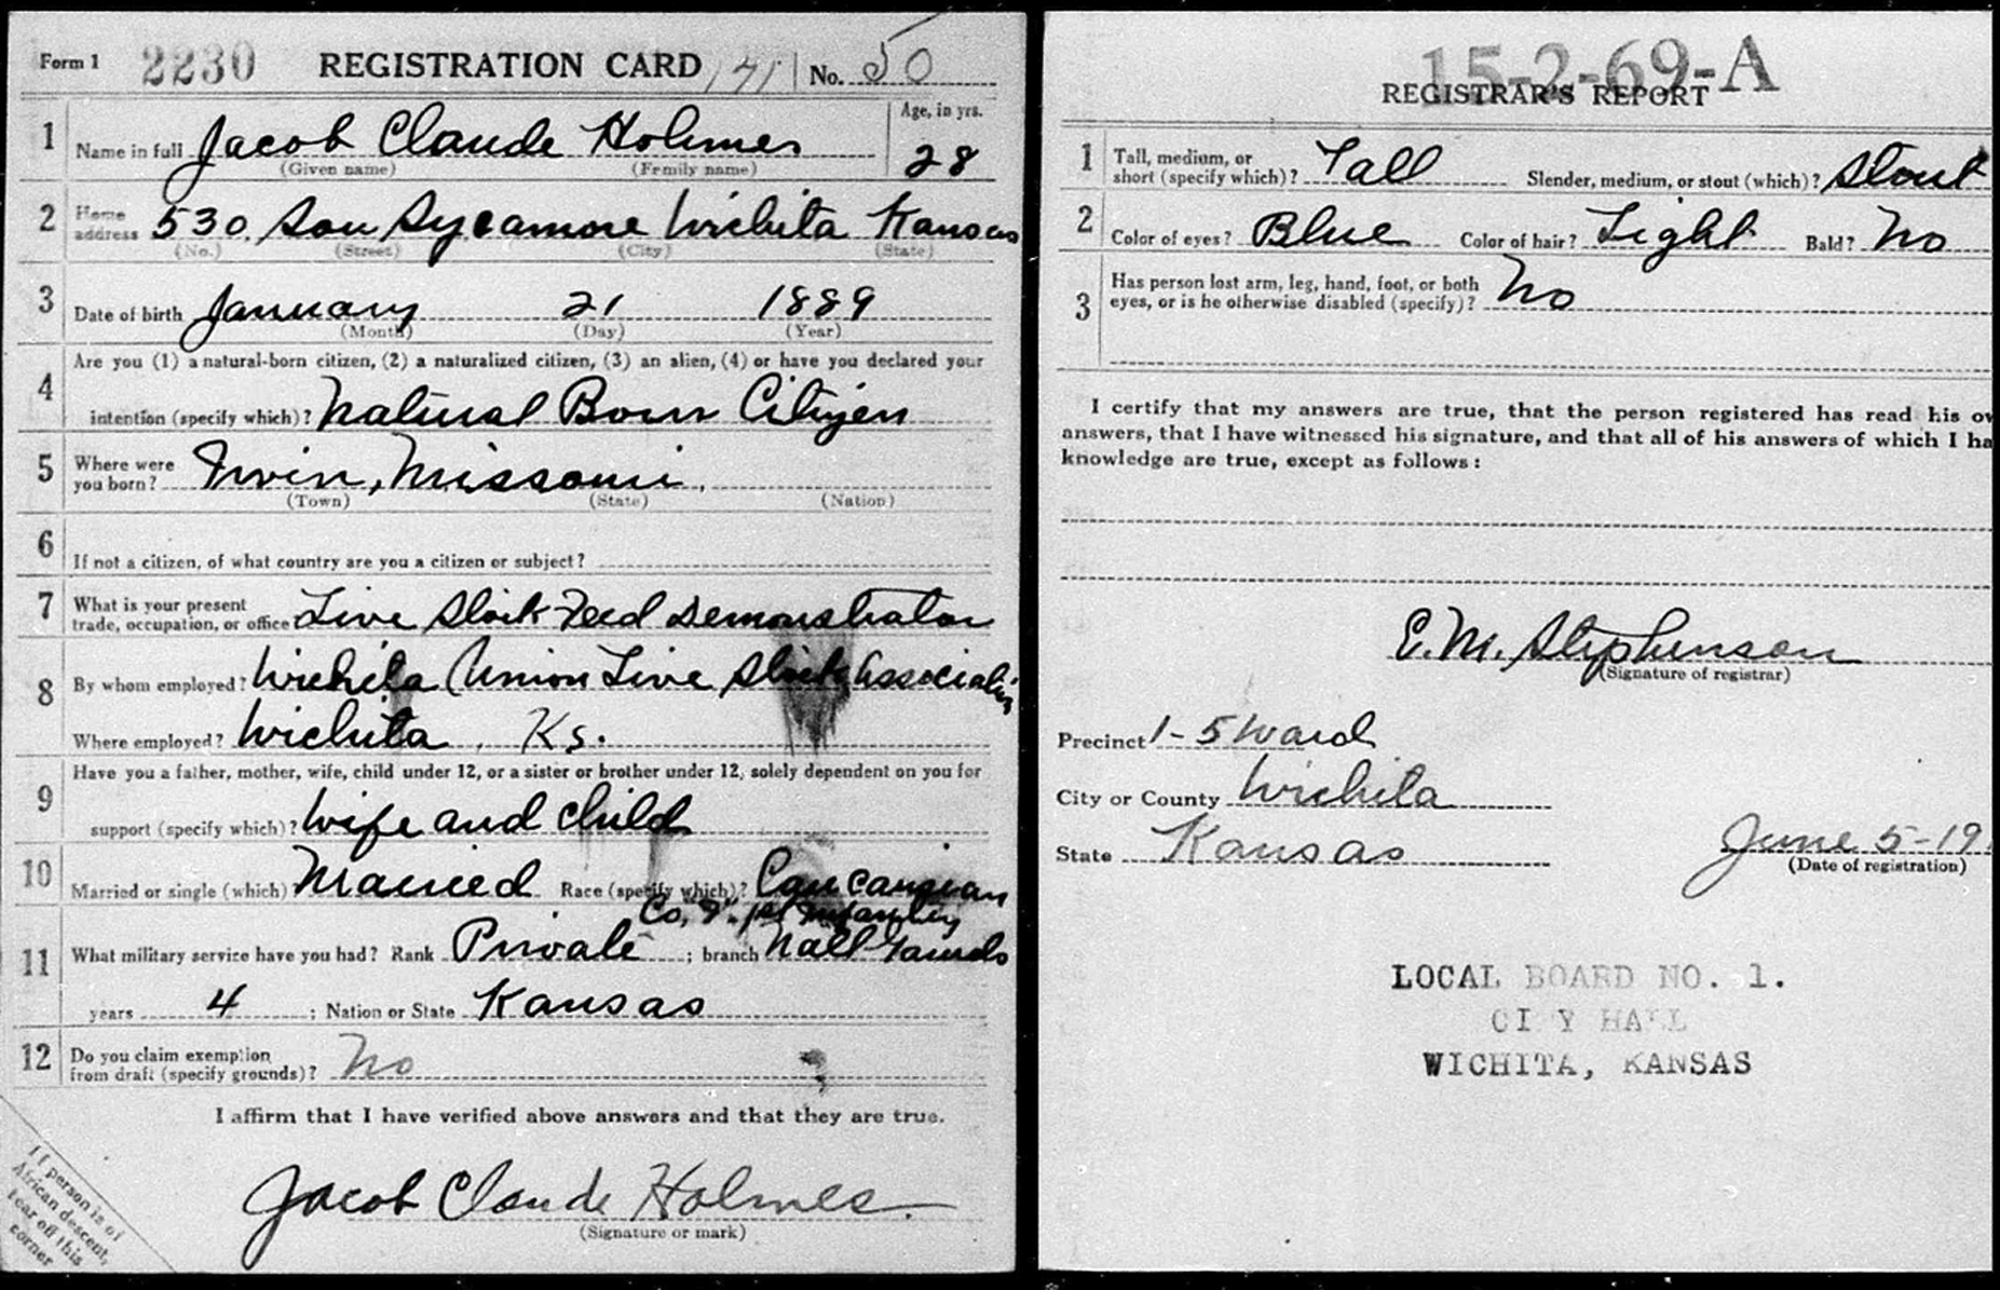 Form 1 2230 REGISTRATION CARD 141 No. 50
1 Name in full Jacob Claude Holmes Age, in yrs. 28
(Given name) (Family name)
2 Home address 530 Sou Sycamore Wichita Kansas
(No.) (Street) (City) (State)
3 Date of birth January 21 1889
(Month) (Day) (Year)
4 Are you (1) a natural-born citizen, (2) a naturalized citizen, (3) an alien, (4) or have you declared your
intention (specify which)? Natural Born Citizen
5 Where were you born? Irwin, Missouri.
(Town) (State) (Nation)
6 If not a citizen, of what country are you a citizen or subject?
7 What is your present trade, occupation, or office Live Stock Feed Demonstrator
8 By whom employed? Wichita Union Live Stock Association
Where employed? Wichita, Ks.
9 Have you a father, mother, wife, child under 12, or a sister or brother under 12, solely dependent on you for
support (specify which)? Wife and child
10 Married or single (which) Married Race (specify which)? Caucausian
Co, 1st Infantry
11 What military service have you had? Rank Private ; branch Natl Gaurds
years 4 ; Nation or State Kansas
12 Do you claim exemption from draft (specify grounds)? No
I affirm that I have verified above answers and that they are true.
Jacob Claude Holmes.
(Signature or mark)
If person is of
African descent,
tear off this
corner
15-2-69-A
REGISTRAR'S REPORT
1 Tall, medium, or short (specify which)? Tall Slender, medium, or stout (which)? Stout
2 Color of eyes? Blue Color of hair? Light Bald? No
3 Has person lost arm, leg, hand, foot, or both eyes, or is he otherwise disabled (specify)? No
I certify that my answers are true, that the person registered has read his ow
answers, that I have witnessed his signature, and that all of his answers of which I ha
knowledge are true, except as follows:
E. M. Stephenson
(Signature of registrar)
Precinct 1-5 Ward
City or County Wichita
State Kansas June 5-19
(Date of registration)
LOCAL BOARD NO. 1.
CITY HALL
WICHITA, KANSAS